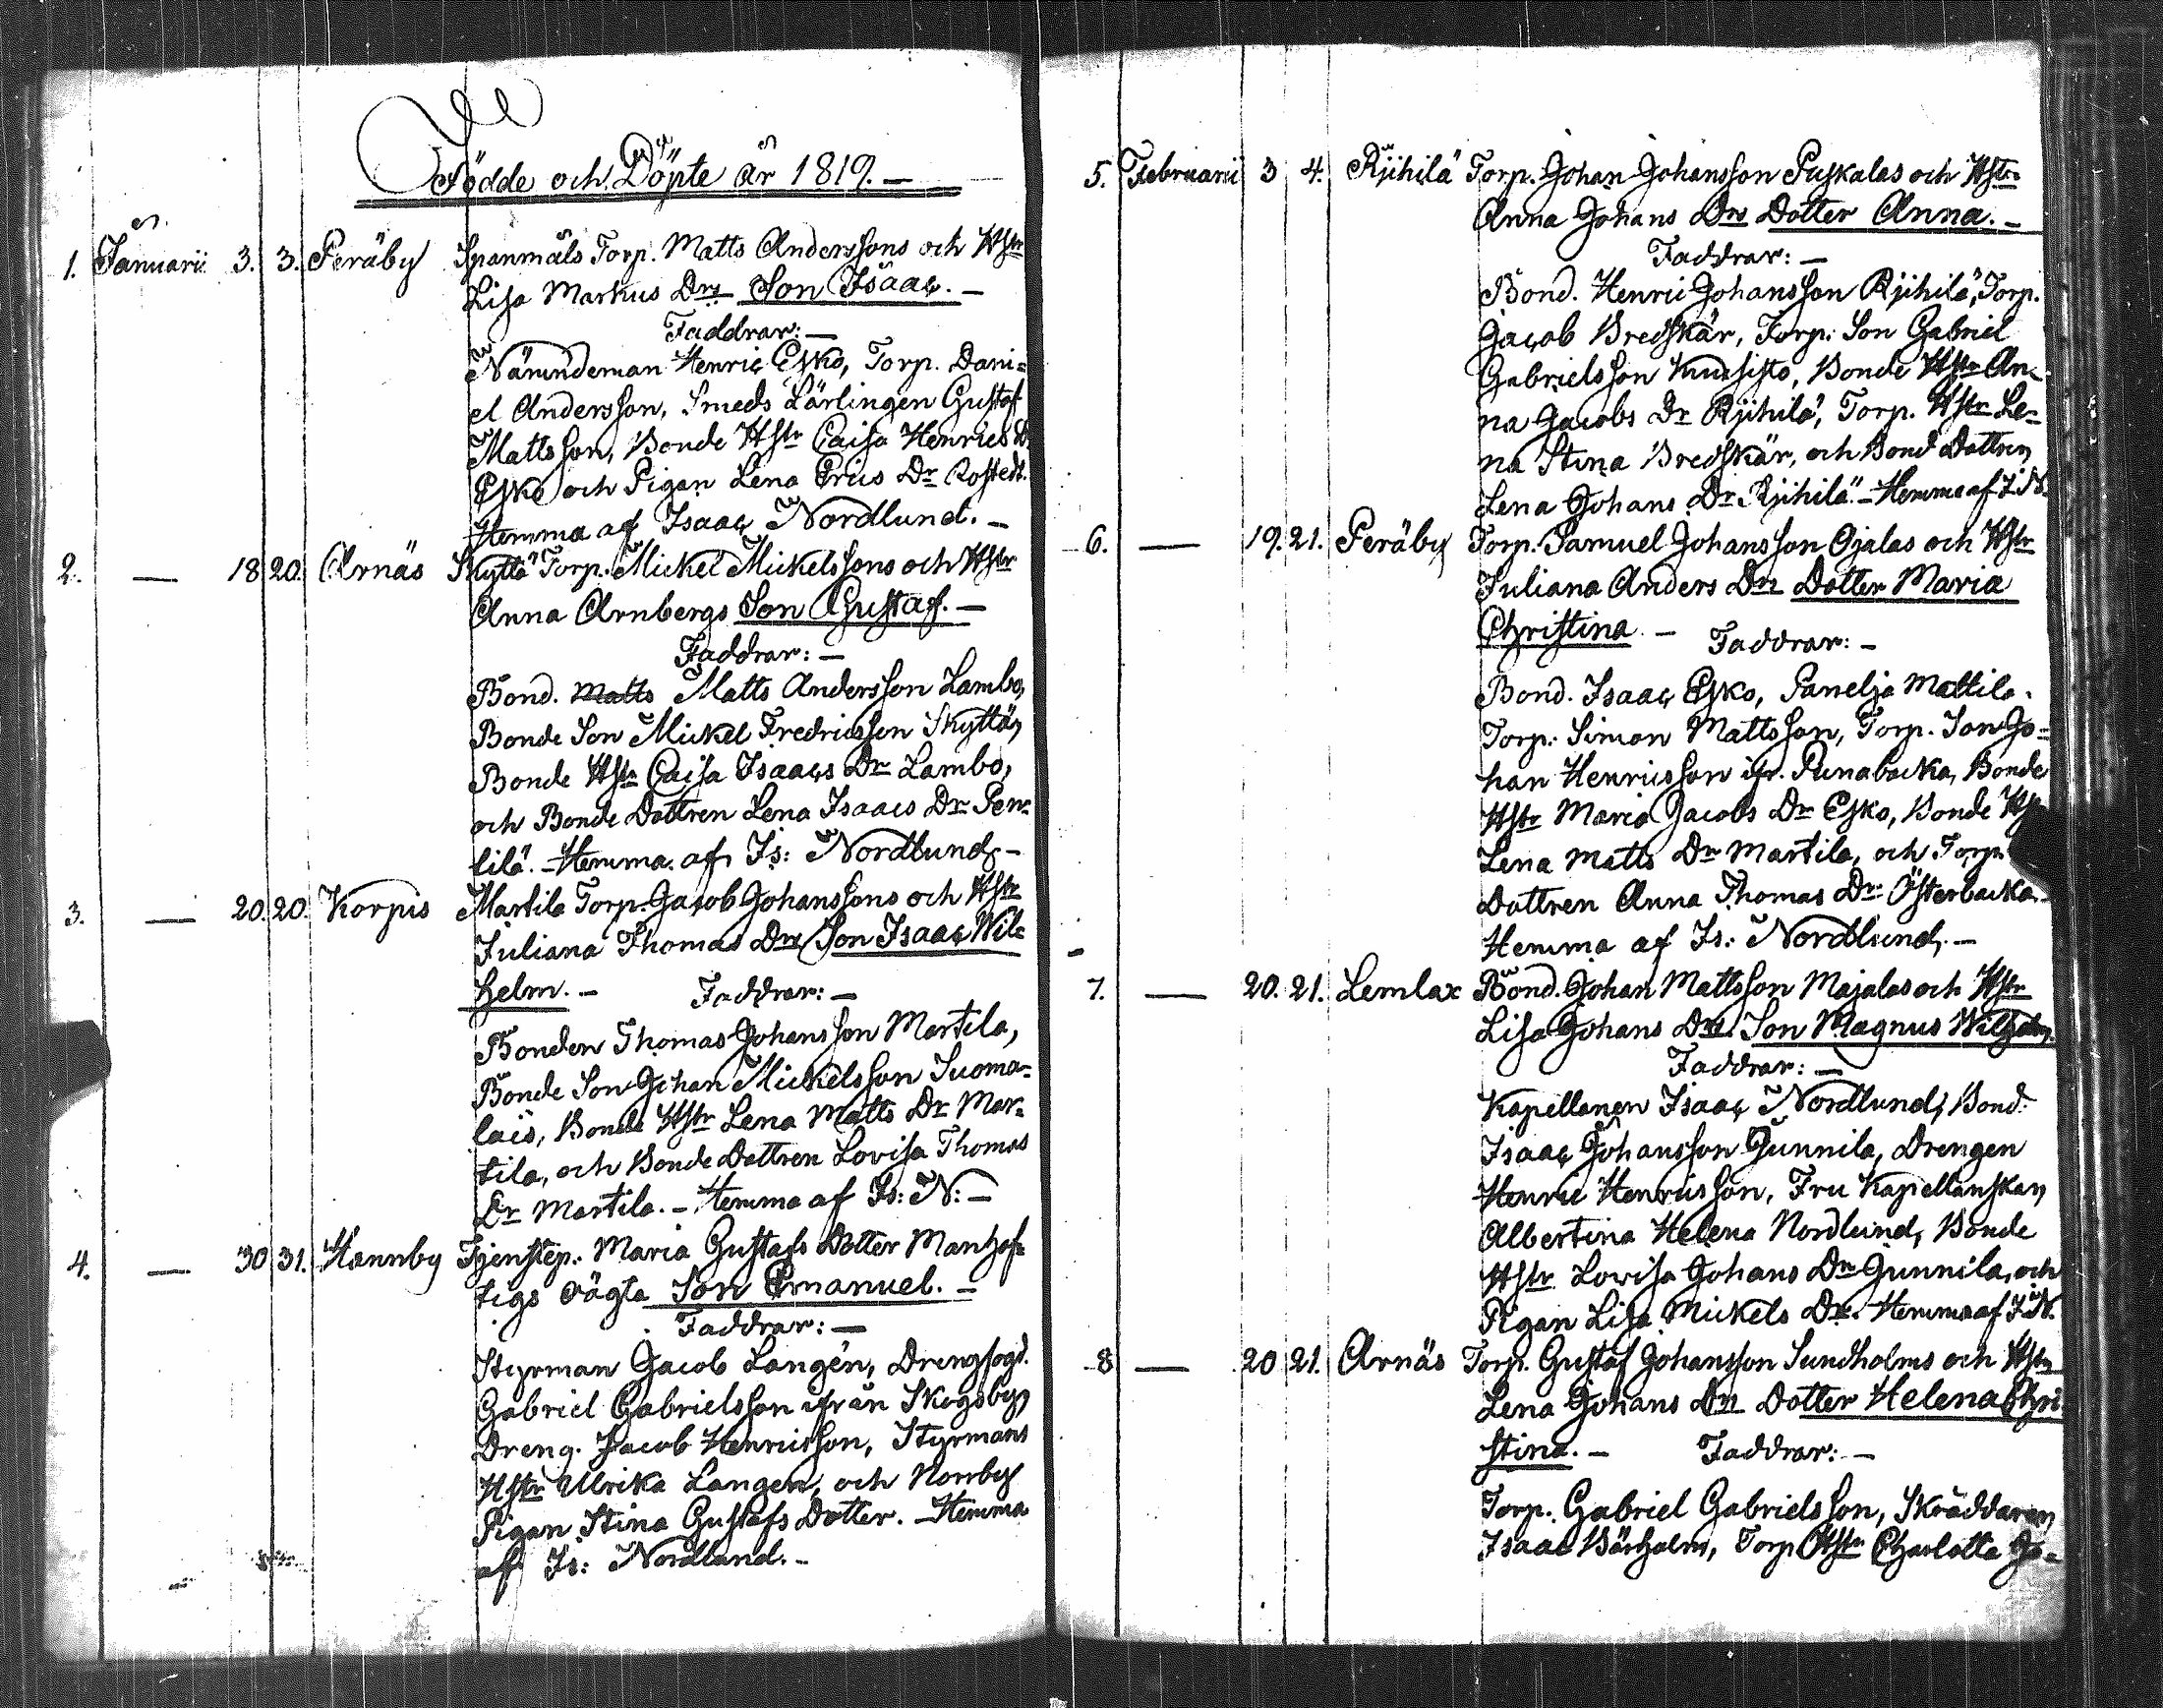 Födde och Döpte År 1819. —
1. Januarii 3. 3. Peräby Spanmåls Torp. Matts Anderssons och Hstr
Lisa Markus Drs Son Isaac. —
Faddrar: —
Nämndeman Henric Esko, Torp. Dani=
el Andersson, Smeds Lärlingen Gustaf
Mattsson, Bonde Hstr Caisa Henrics D.
Esko och Pigan Lena Eriks Dr
Hemma af Isaac Nordlund. —
2. — 18 20. Arnäs Skyttä Torp. Mickel Mickelssons och Hstr
Anna Arnbergs Son Gustaf. —
Faddrar: —
Bond. Matts Matts Andersson Lambo,
Bonde Son Mickel Fredricsson Skyttä,
Bonde Hstr Caisa Isaacs Dr Lambo,
och Bonde Dottren Lena Isaacs Dr Pen=
tilä. — Hemma af Is: Nordlund, —
3. — 20. 20. Korpis Martila Torp. Jacob Johanssons och Hstr
Juliana Thomas Drs Son Isaac Wil=
helm. — Faddrar: —
Bonden Thomas Johansson Martila,
Bonde Son Johan Mickelsson Suoma=
lais, Bonde Hstr Lena Matts Dr Mar=
tila, och Bonde Dottren Lovisa Thomas
Dr Martila. — Hemma af Is: N: —
4. — 30 31. Hannby Tjenstep. Maria Gustafs Dotter Manhaf=
tigs oägta Son Emanuel. —
Faddrar: —
Styrman Jacob Langén, Drengfogd.
Gabriel Gabrielsson ifrån Skogsby,
Dreng. Jacob Henricsson, Styrmans
Hstr Ulrika Langen, och Norrby
Pigan Stina Gustafs Dotter. — Hemma
af Is: Nordlund. —
5. Februarii 3 4. Rjihilä Torp. Johan Johansson Puskalas och Hstr
Anna Johans Drs Dotter Anna. —
Faddrar: —
Bond. Henric Johansson Rjihilä, Torp.
Jacob Bredskär, Torp. Son Gabriel
Gabrielsson Kuusisto, Bonde Hstr An=
na Jacobs Dr Rjihilä, Torp. Hstr Le=
na Stina Bredskär, och Bond Dottren
Lena Johans Dr Rjihilä. — Hemma af I. N.
6. — 19. 21. Peräby Torp. Samuel Johansson Ojalas och Hstr
Juliana Anders Drs Dotter Maria
Christina. — Faddrar: —
Bond. Isaac Esko, Panelja Mattila
Torp. Simon Mattsson, Torp. Son Jo=
han Henricsson ifr. Punabacka, Bonde
Hstr Maria Jacobs Dr Esko, Bonde Hst
Lena Matts Dr Martila, och Torp.
Dottren Anna Thomas Dr Österbacka.
Hemma af Is: Nordlund, —
7. — 20. 21. Lemlax Bond. Johan Mattsson Majalas och Hstr
Lisa Johans Drs Son Magnus Wilhelm.
Faddrar: —
Kapellanen Isaac Nordlund, Bond.
Isaac Johansson Gunnila, Drengen
Henric Henricsson, Fru Kapellanskan
Albertina Helena Nordlund, Bonde
Hstr Lovisa Johans Dr Gunnila, och
Pigan Lisa Mickels Dr. Hemma af I. N.
8 — 20 21. Arnäs Torp. Gustaf Johansson Sundholms och Hstr
Lena Johans Drs Dotter Helena Chri
stina. — Faddrar: —
Torp. Gabriel Gabrielsson, Skräddaren
Isaac Torp Hstr Charlotta Jo=